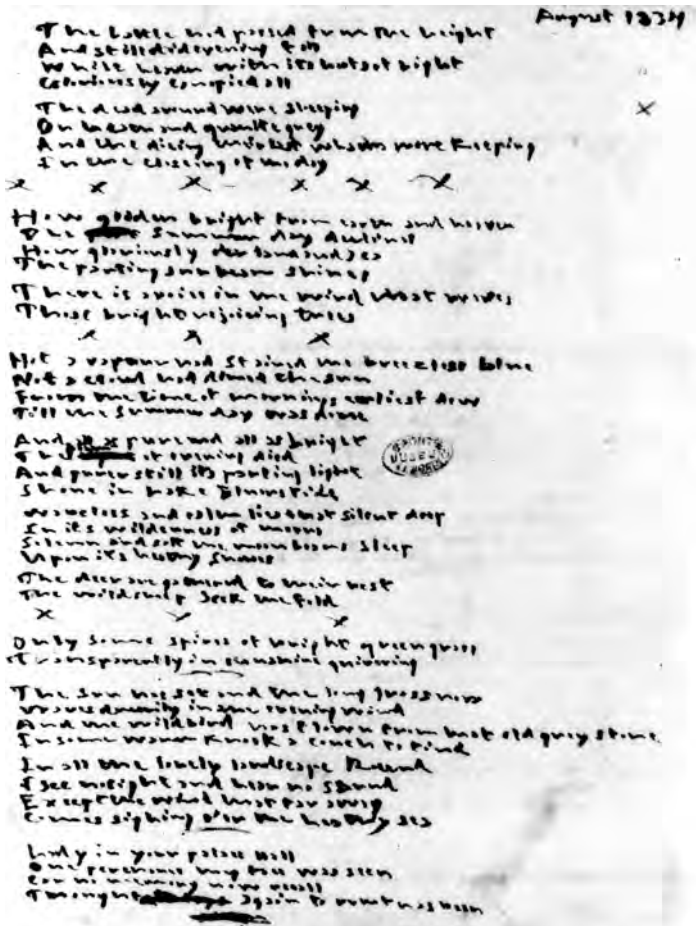 August 1837
The battle had passed from the height
And still did evening fall
While heaven with its hosts of night
Gloriously canopied all
The dead around were sleeping
On heath and granite grey
And the dieing their last watch were keeping
In the closing of the day
How golden bright from earth and heaven
The summer day declines
How gloriously oer land and sea
The parting sunbeam shines
There is a voice in the wind that waves
Those bright rejoicing trees
Not a vapour had stained the breezless blue
Not a cloud had dimed the sun
From the time of mornings earliest dew
Till the summer day was done
And all as pure and all as bright
The beam of evening died
And purer still its parting light
Shone in Lake Elnor's tide
Waveless and calm lies that silent deep
In its wilderness of moors
Solemn and soft the moonbeams sleep
Upon its heathy shores
The deer are gathered to their rest
The wild sheep seek the fold
Only some spires of bright green grass
Transparently in sunshine quivering
The sun has set and the long grass now
Waves drearily in the evening wind
And the wild bird has flown from that old grey stone
In some warm nook a couch to find
In all the lonely landscape Round
I see no sight and hear no sound
Except the wind that far away
Comes sighing o'er the heathy sea
Lady in your palace Hall
Once perchance my face was seen
Can no memory now recall
Thought again to what has been
BRONTE
MUSEUM
HAWORTH